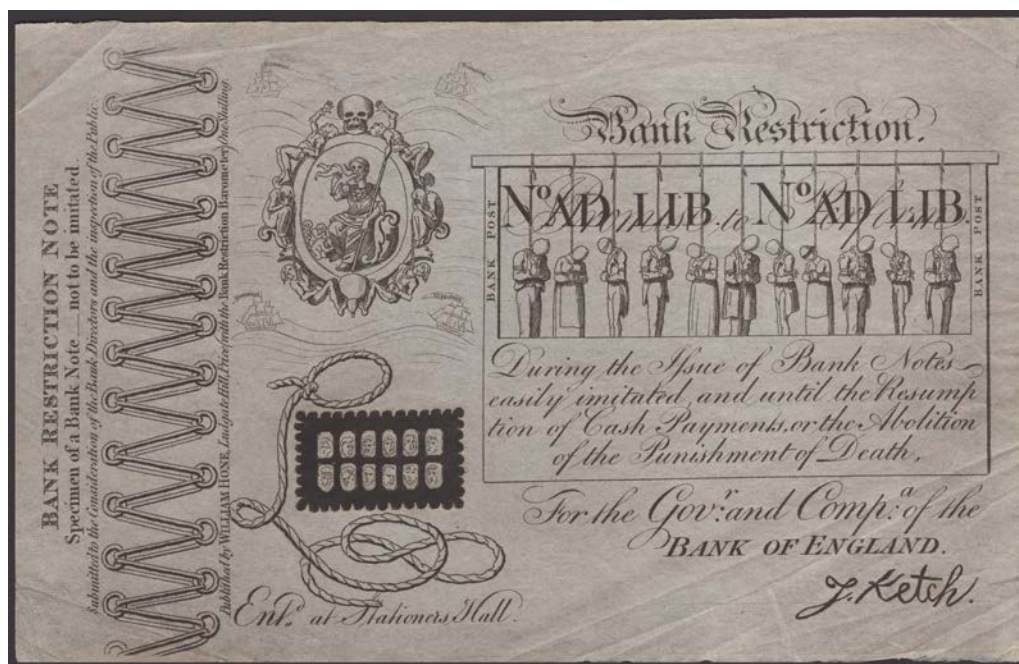 BANK RESTRICTION NOTE
Specimen of a Bank Note__not to be imitated.
Submitted to the Consideration of the Bank Directors and the inspection of the Public.
Published by WILLIAM HONE, Ludgate Hill, Price with the Bank Restriction Barometer One Shilling.
Bank Restriction.
No. AD LIB. No. AD LIB.
Promise to Perform
BANK POST
BANK POST
During the Issue of Bank Notes
easily imitated, and until the Resump
tion of Cash Payments, or the Abolition
of the Punishment of Death,
For the Govr. and Compa. of the
BANK OF ENGLAND.
J. Ketch.
Entd. at Stationers Hall.